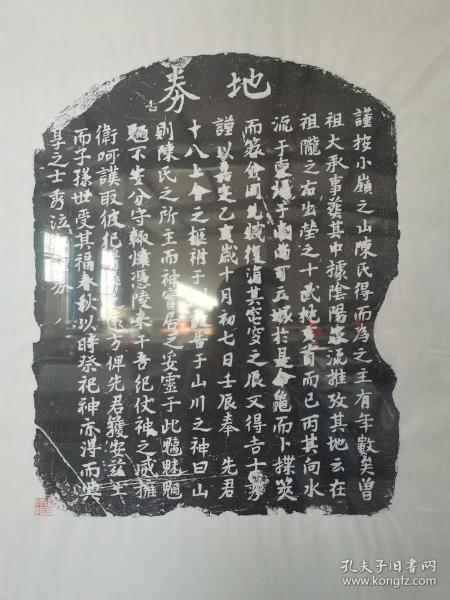 地券
謹按小嶺之山陳氏得而為之主有年數矣曾
祖大承事葬其中據陰陽家流推攷其地云在
祖隴之右出塋之十武枕 首而已丙其向水
流于 于 可五城於是命龜而卜揲筮
而筮僉同 復涓其窀穸之辰又得吉卜
謹以嘉定乙 歲十月初七日壬辰奉先君
十八上舍之柩祔于 告于山川之神曰山
則陳氏之所主而神實居之妥靈于此魑魅魍
魎不生分守輒 憑陵來干吾紀仗神之威擁
衛呵護取彼 遠方俾先君獲安茲土
而子孫世受其福春秋以時祭祀神亦得而與
享之 士秀泣 券
孔夫子旧书网
www.kongfz.com